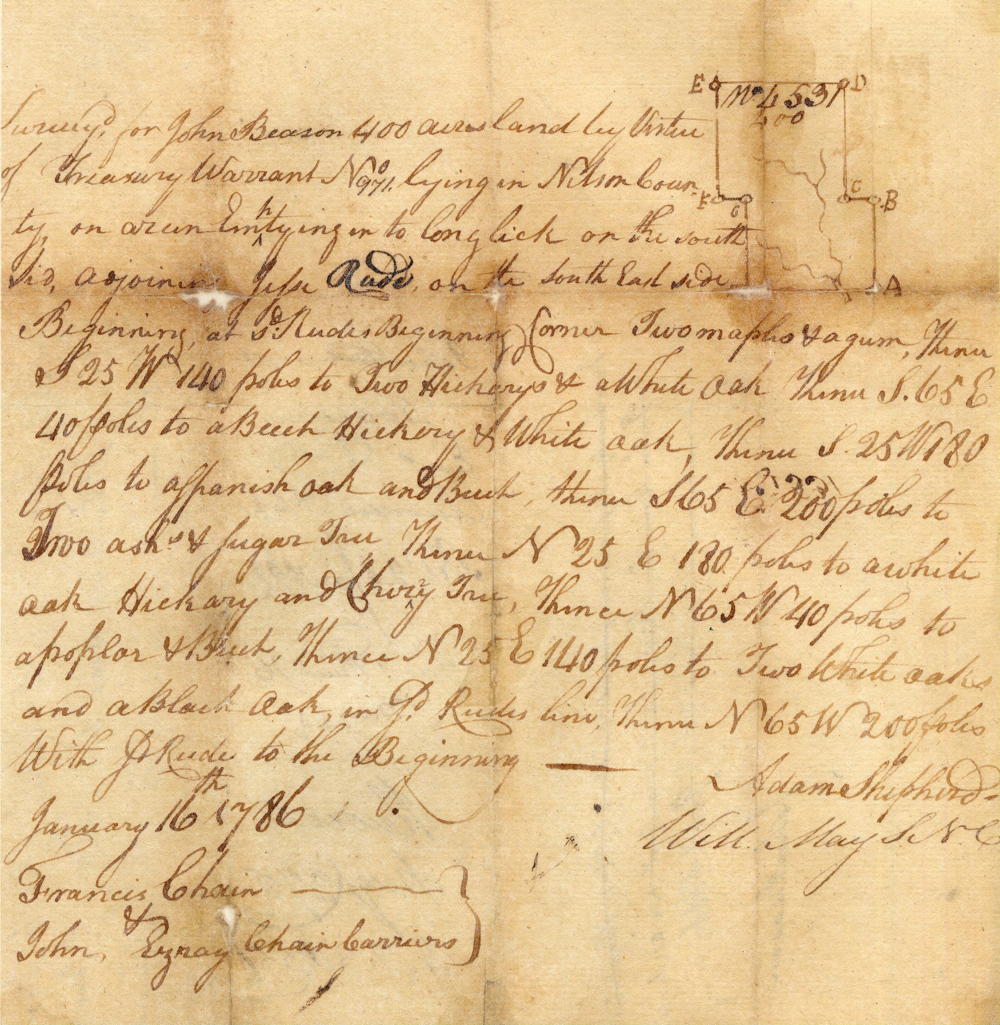 E D
No 4531
400
Survey'd for John Beason 400 acres land by Virtue
of Treasury Warrant No 971. lying in Nelson Coun-
F G C B
ty, on a run Emtying in to long lick on the south
Sid, adjoining Jesse Rude, on the South East side
A
Beginning, at sd. Rudes Beginning Corner Two maples & a gum, Thence
S 25 W 140 poles to Two Hickorys & a White Oak Thence S. 65 E
40 poles to a Beech Hickery & White oak, Thence S. 25 W 180
Poles to a Spanish oak and Beech, thence S 65 E. 200 poles to
Two ashs & Sugar Tree Thence N 25 E 180 poles to a white
oak Hickary and Cherry Tree, Thence N 65 W 40 poles to
a poplar & Beech, Thence N 25 E 140 poles to Two White oaks
and a Black Oak, in Sd. Rudes line, Thence N 65 W 200 poles
With Sd Rude to the Beginning
Adam Shepherd
January 16th 1786
Will. May S. N. C
Francis Chain
&
John, Chain Carriers